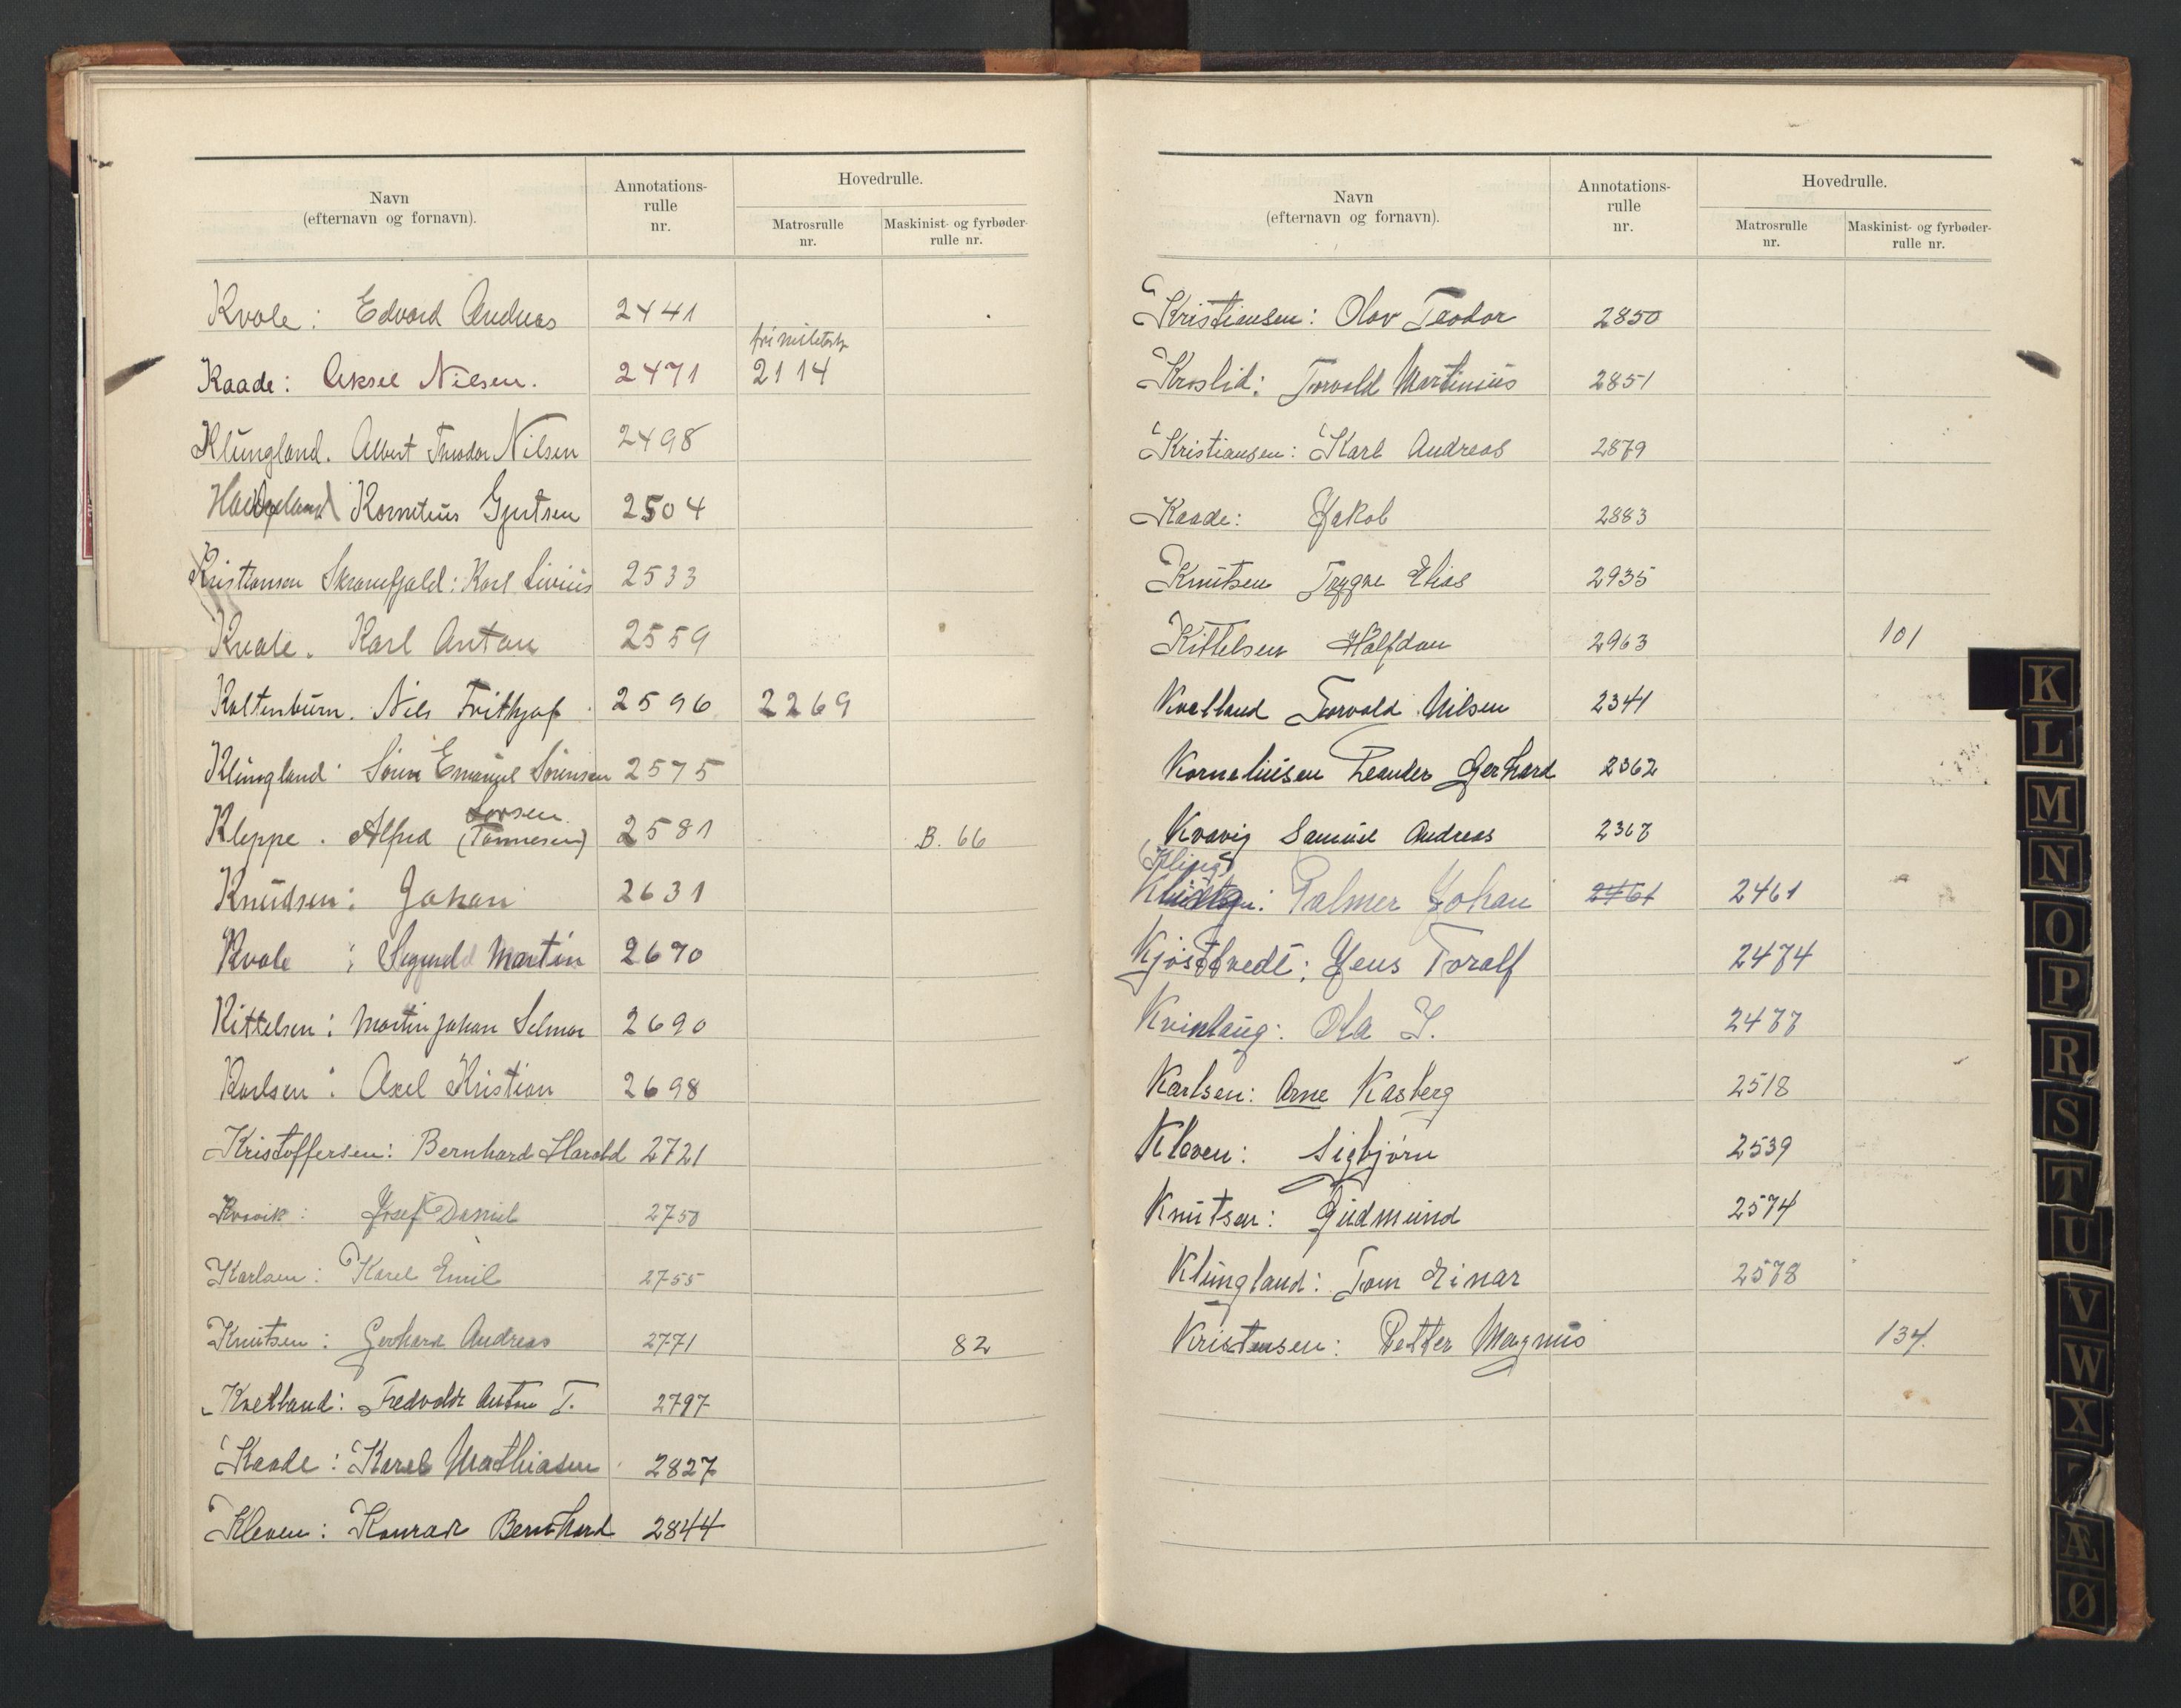 Navn
(efternavn og fornavn).
Annotations-
rulle
nr.
Hovedrulle.
Matrosrulle
nr.
Maskinist- og fyrbøder-
rulle nr.
Kvale: Edvard Andreas 2441
fri militærtj.
Kaade: Aksel Nilsen. 2471 2114
Klungland. Albert Theodor Nilsen 2498
Kornelius Gjertsen 2504
Kristiansen Skramfjeld: Karl Livius 2533
Kvale. Karl Anton 2559
Koltenburn. Nils Frithjof 2596 2269
Klungland Sören Emanuel Sörensen 2575
Larsen.
Kleppe. Alfred (Tönnesen) 2581 B. 66
Knudsen: Johan 2631
Kvale: Sigurd Martin 2670
Kittelsen: Martin Johan Selmer 2690
Karlsen: Axel Kristian 2698
Kristoffersen: Bernhard Harald 2721
Kvavik: Josef Daniel 2750
Karlsen: Karel Emil 2755
Knutsen: Gerhard Andreas 2771 82
Kvelland: Fredvold Anton T. 2797
Kaade: Karel Mathiasen 2827
Kleven: Konrad Bernhard 2844
Navn
(efternavn og fornavn).
Annotations-
rulle
nr.
Hovedrulle.
Matrosrulle
nr.
Maskinist- og fyrbøder-
rulle nr.
Kristiansen: Olav Teodor 2850
Kroslid: Torvald Martinius 2851
Kristiansen: Karl Andreas 2879
Kaade: Jakob 2883
Knutsen Trygve Elias 2935
Kittelsen Halfdan 2963 101
Kvelland Torvald Nilsen 2341
Korneliusen Leander Gerhard 2362
Kvavig Samuel Andreas 2367
Palmer Johan 2461 2461
Kjøstvedt: Jens Toralf 2474
Kvinlaug: Ola J. 2477
Karlsen: Arne Kasberg 2518
Kleven: Sigbjørn 2539
Knutsen: Gudmund 2574
Klungland: Tom Einar 2578
Kristensen: Petter Magnus 134.
K
L
M
N
O
P
R
S
T
U
V
W
X
Æ
Ø